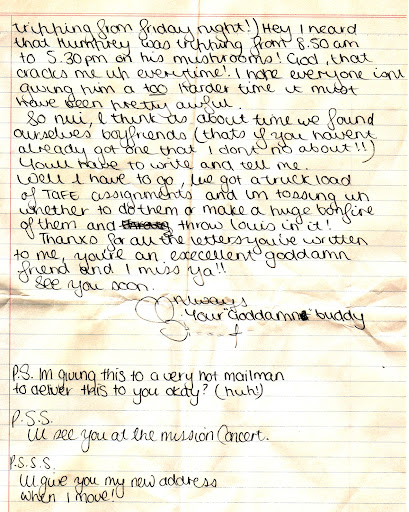 tripping from friday night!) Hey I heard
that Humphrey was tripping from 8.50 am
to 5.30pm on his mushrooms! God, that
cracks me up everytime! I hope everyone isnt
giving him a too harder time it must
have been pretty awful.
So nui, I think its about time we found
ourselves boyfriends (thats if you havent
already got one that I dont no about!!)
Youll have to write and tell me.
Well I have to go, Ive got a truck load
of TAFE assignments and im tossing up
whether to do them or make a huge bonfire
of them and throw Louis in it!
Thanks for all the letters you've written
to me, you're an execellent goddamn
friend and I miss ya!!
See you soon.
Always
Your "Goddamn" buddy
P.S. Im giving this to a very hot mailman
to deliver this to you okay? (huh!)
P.S.S.
Ill see you at the mission Concert.
P.S.S.S.
Ill give you my new address
when I move!